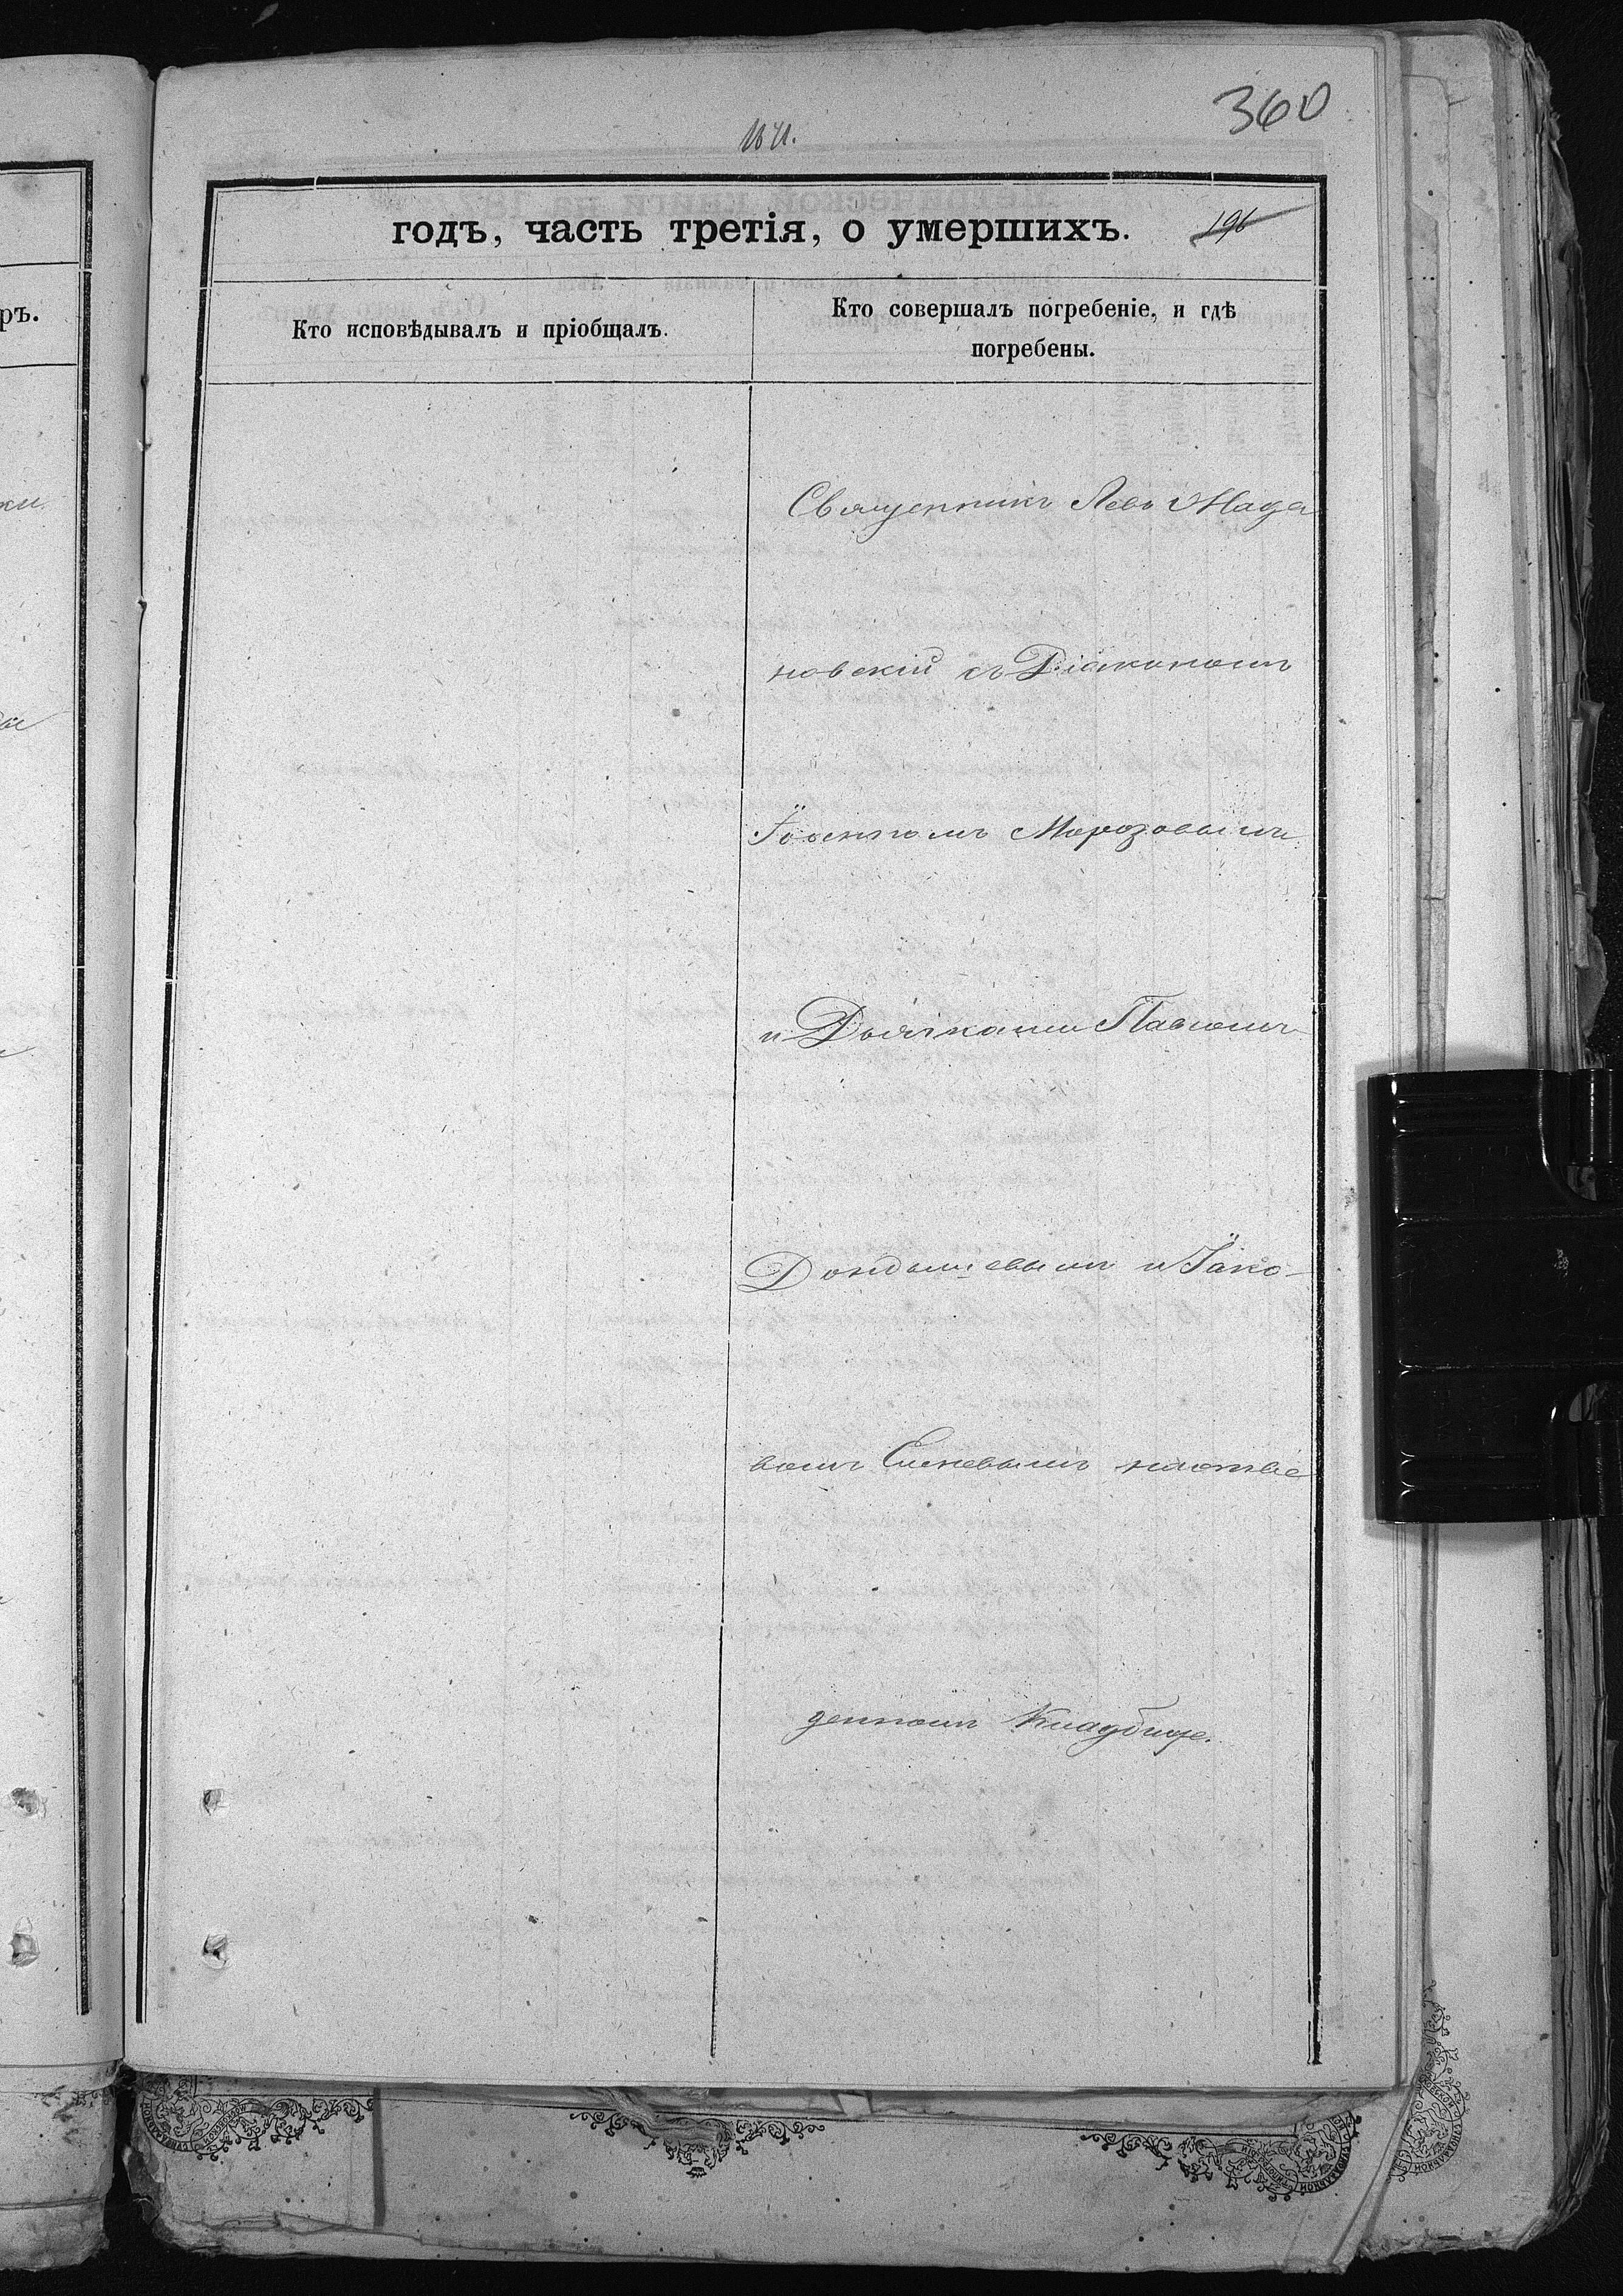 360
годъ, часть третія, о умершихъ.
196
Кто исповѣдывалъ и пріобщалъ.
Кто совершалъ погребеніе, и гдѣ
погребены.
ръ.
Священникъ Левъ Маца
новскій съ Діакономъ
Іоанномъ Морозовымъ
и Дьячками Павломъ
Дондышевымъ и Іако-
вомъ Еленевымъ на отве
денномъ Кладбище.